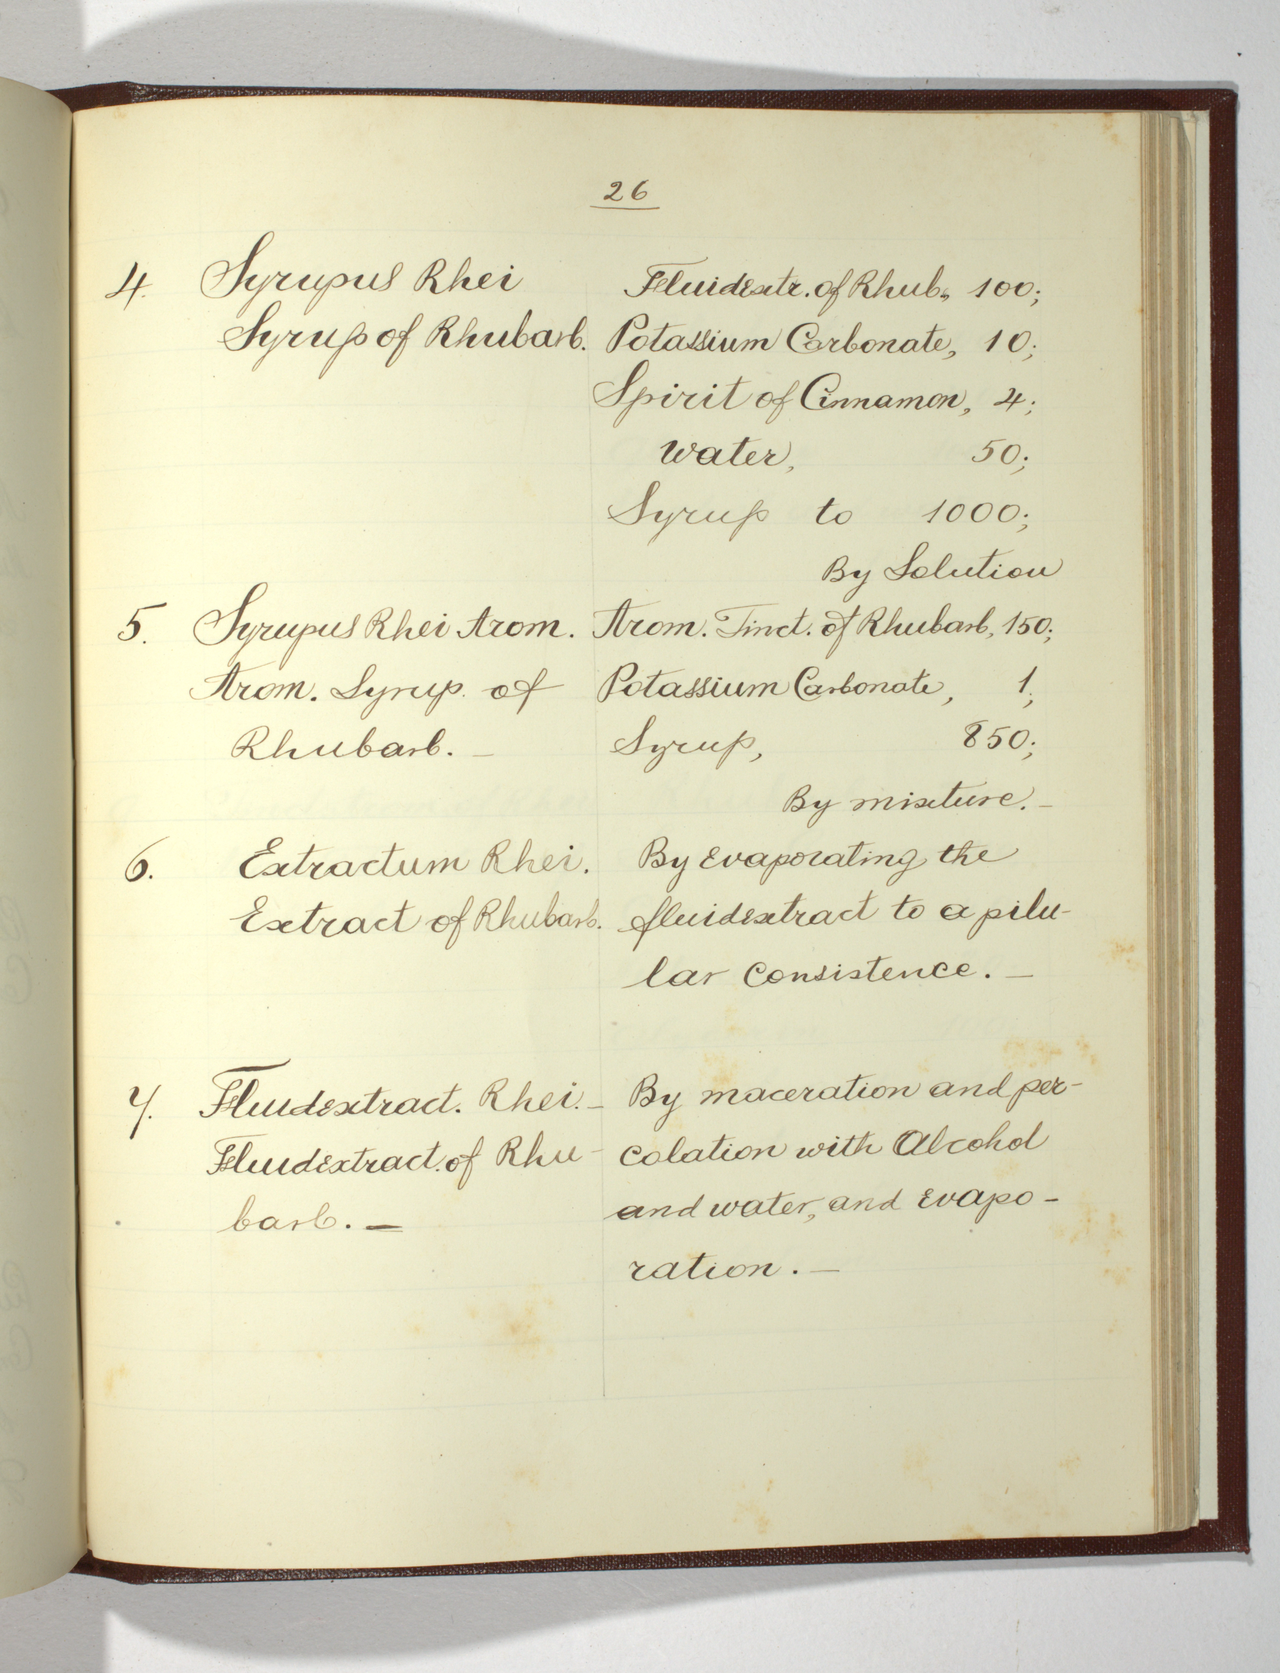 26
4. Syrupus Rhei Fluidextr. of Rhub., 100;
Syrup of Rhubarb. Potassium Carbonate, 10;
Spirit of Cinnamon, 4;
Water, 50;
Syrup to 1000;
By Solution
5. Syrupus Rhei Arom. Arom. Tinct. of Rhubarb, 150;
Arom. Syrup. of Potassium Carbonate, 1;
Rhubarb. — Syrup, 850;
By mixture. —
6. Extractum Rhei. By Evaporating the
Extract of Rhubarb. fluidextract to a pilu-
lar Consistence. —
7. Fluidextract. Rhei. — By maceration and per-
Fluidextract. of Rhu- colation with Alcohol
barb. — and water, and Evapo-
ration. —